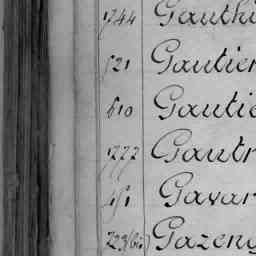 1744 Gauthi
521 Gautier
610 Gautie
1777 Gautr
451 Gavar
223(bis) Gazeng